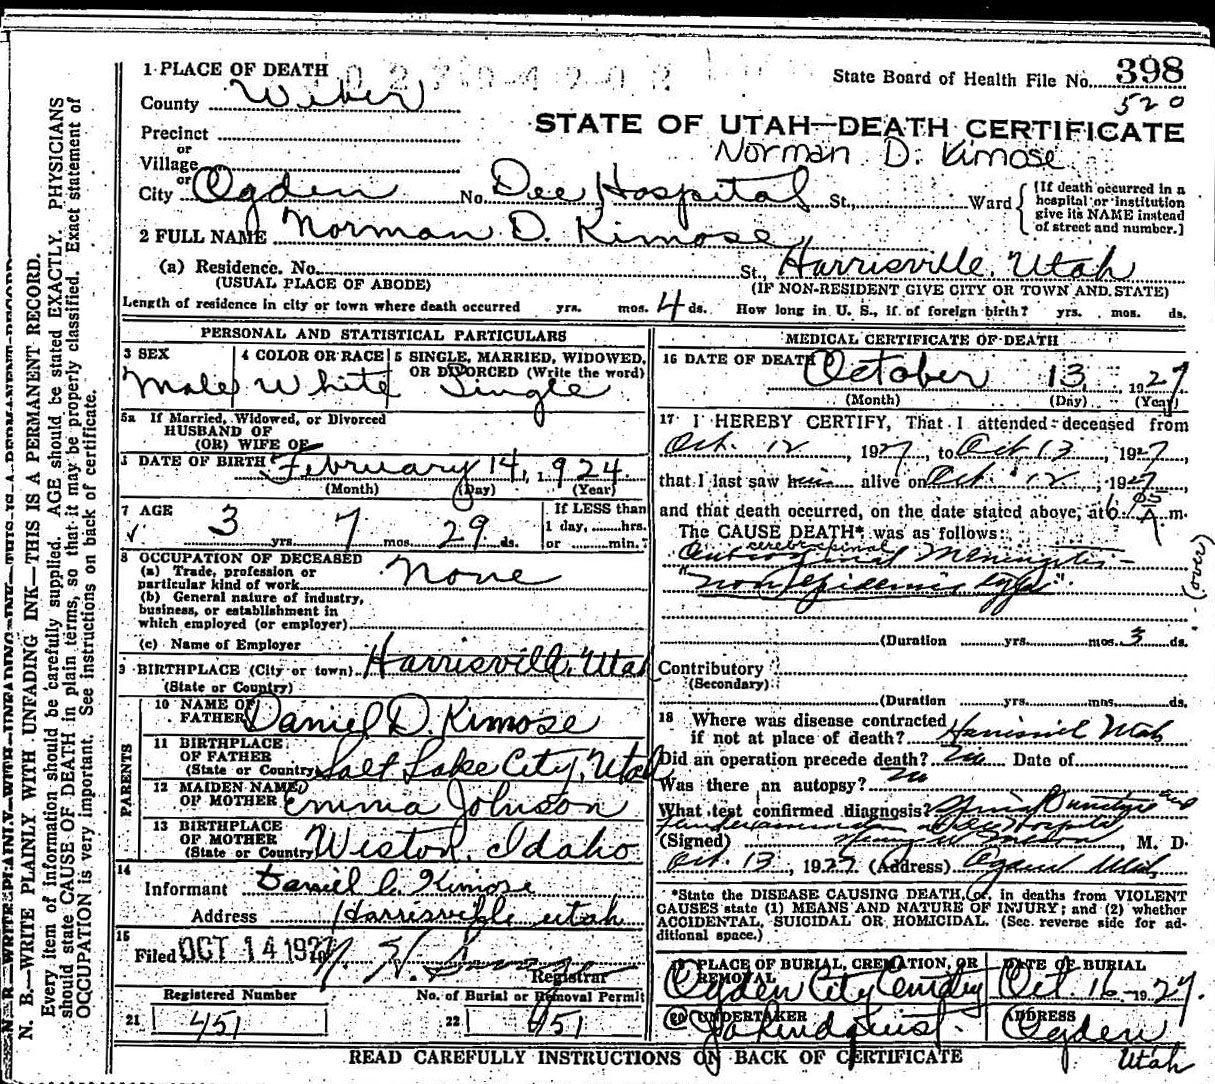 1 PLACE OF DEATH
State Board of Health File No. 398
County Weber
520
STATE OF UTAH—DEATH CERTIFICATE
Precinct
or
Norman D. Kimose
Village
or
City Ogden No. Dee Hospital St., Ward {[If death occurred in a hospital or institution give its NAME instead of street and number.]
2 FULL NAME Norman D. Kimose
(a) Residence. No. St., Harrisville, Utah
(USUAL PLACE OF ABODE) (IF NON-RESIDENT GIVE CITY OR TOWN AND STATE)
Length of residence in city or town where death occurred yrs. mos. 4 ds. How long in U. S., if of foreign birth? yrs. mos. ds.
PERSONAL AND STATISTICAL PARTICULARS
3 SEX 4 COLOR OR RACE 5 SINGLE, MARRIED, WIDOWED,
OR DIVORCED (Write the word)
Male White Single
5a If Married, Widowed, or Divorced
HUSBAND OF
(OR) WIFE OF
DATE OF BIRTH February 14, 1924
(Month) (Day) (Year)
7 AGE 3 yrs. 7 mos. 29 ds.
If LESS than
1 day, hrs.
or min.?
8 OCCUPATION OF DECEASED
(a) Trade, profession or
particular kind of work None
(b) General nature of industry,
business, or establishment in
which employed (or employer)
(c) Name of Employer
9 BIRTHPLACE (City or town) Harrisville, Utah
(State or Country)
PARENTS
10 NAME OF
FATHER Daniel D. Kimose
11 BIRTHPLACE
OF FATHER
(State or Country) Salt Lake City, Utah
12 MAIDEN NAME
OF MOTHER Emma Johnson
13 BIRTHPLACE
OF MOTHER
(State or Country) Weston, Idaho
14
Informant Daniel D. Kimose
Address Harrisville Utah
15
Filed OCT 14 1927
Registrar
Registered Number No. of Burial or Removal Permit
21 451 22 451
MEDICAL CERTIFICATE OF DEATH
16 DATE OF DEATH October 13 1927
(Month) (Day) (Year)
17 I HEREBY CERTIFY, That I attended deceased from
Oct. 12, 1927, to Oct 13, 1927,
that I last saw him alive on Oct. 12, 1927,
and that death occurred, on the date stated above, at 6 A m.
The CAUSE DEATH* was as follows:
cerebrospinal Meningitis—
"non epidemic type".
(over)
(Duration yrs. mos. 3 ds.
Contributory
(Secondary)
(Duration yrs. mos. ds.
18 Where was disease contracted
if not at place of death? Harrisville Utah
Did an operation precede death? No Date of
Was there an autopsy? No
What test confirmed diagnosis? Spinal Puncture and
Hospital
(Signed) M. D.
Oct. 13, 1927 (Address) Ogden Utah
*State the DISEASE CAUSING DEATH, or, in deaths from VIOLENT
CAUSES state (1) MEANS AND NATURE OF INJURY; and (2) whether
ACCIDENTAL, SUICIDAL OR HOMICIDAL. (See reverse side for ad-
ditional space.)
19 PLACE OF BURIAL, CREMATION, OR
REMOVAL
Ogden City Cemetery
DATE OF BURIAL
Oct. 16 1927.
20 UNDERTAKER
Lindquist.
ADDRESS
Ogden
Utah
READ CAREFULLY INSTRUCTIONS ON BACK OF CERTIFICATE
N. B.—WRITE PLAINLY WITH UNFADING INK—THIS IS A PERMANENT RECORD.
Every item of information should be carefully supplied. AGE should be stated EXACTLY. PHYSICIANS
should state CAUSE OF DEATH in plain terms, so that it may be properly classified. Exact statement of
OCCUPATION is very important. See instructions on back of certificate.